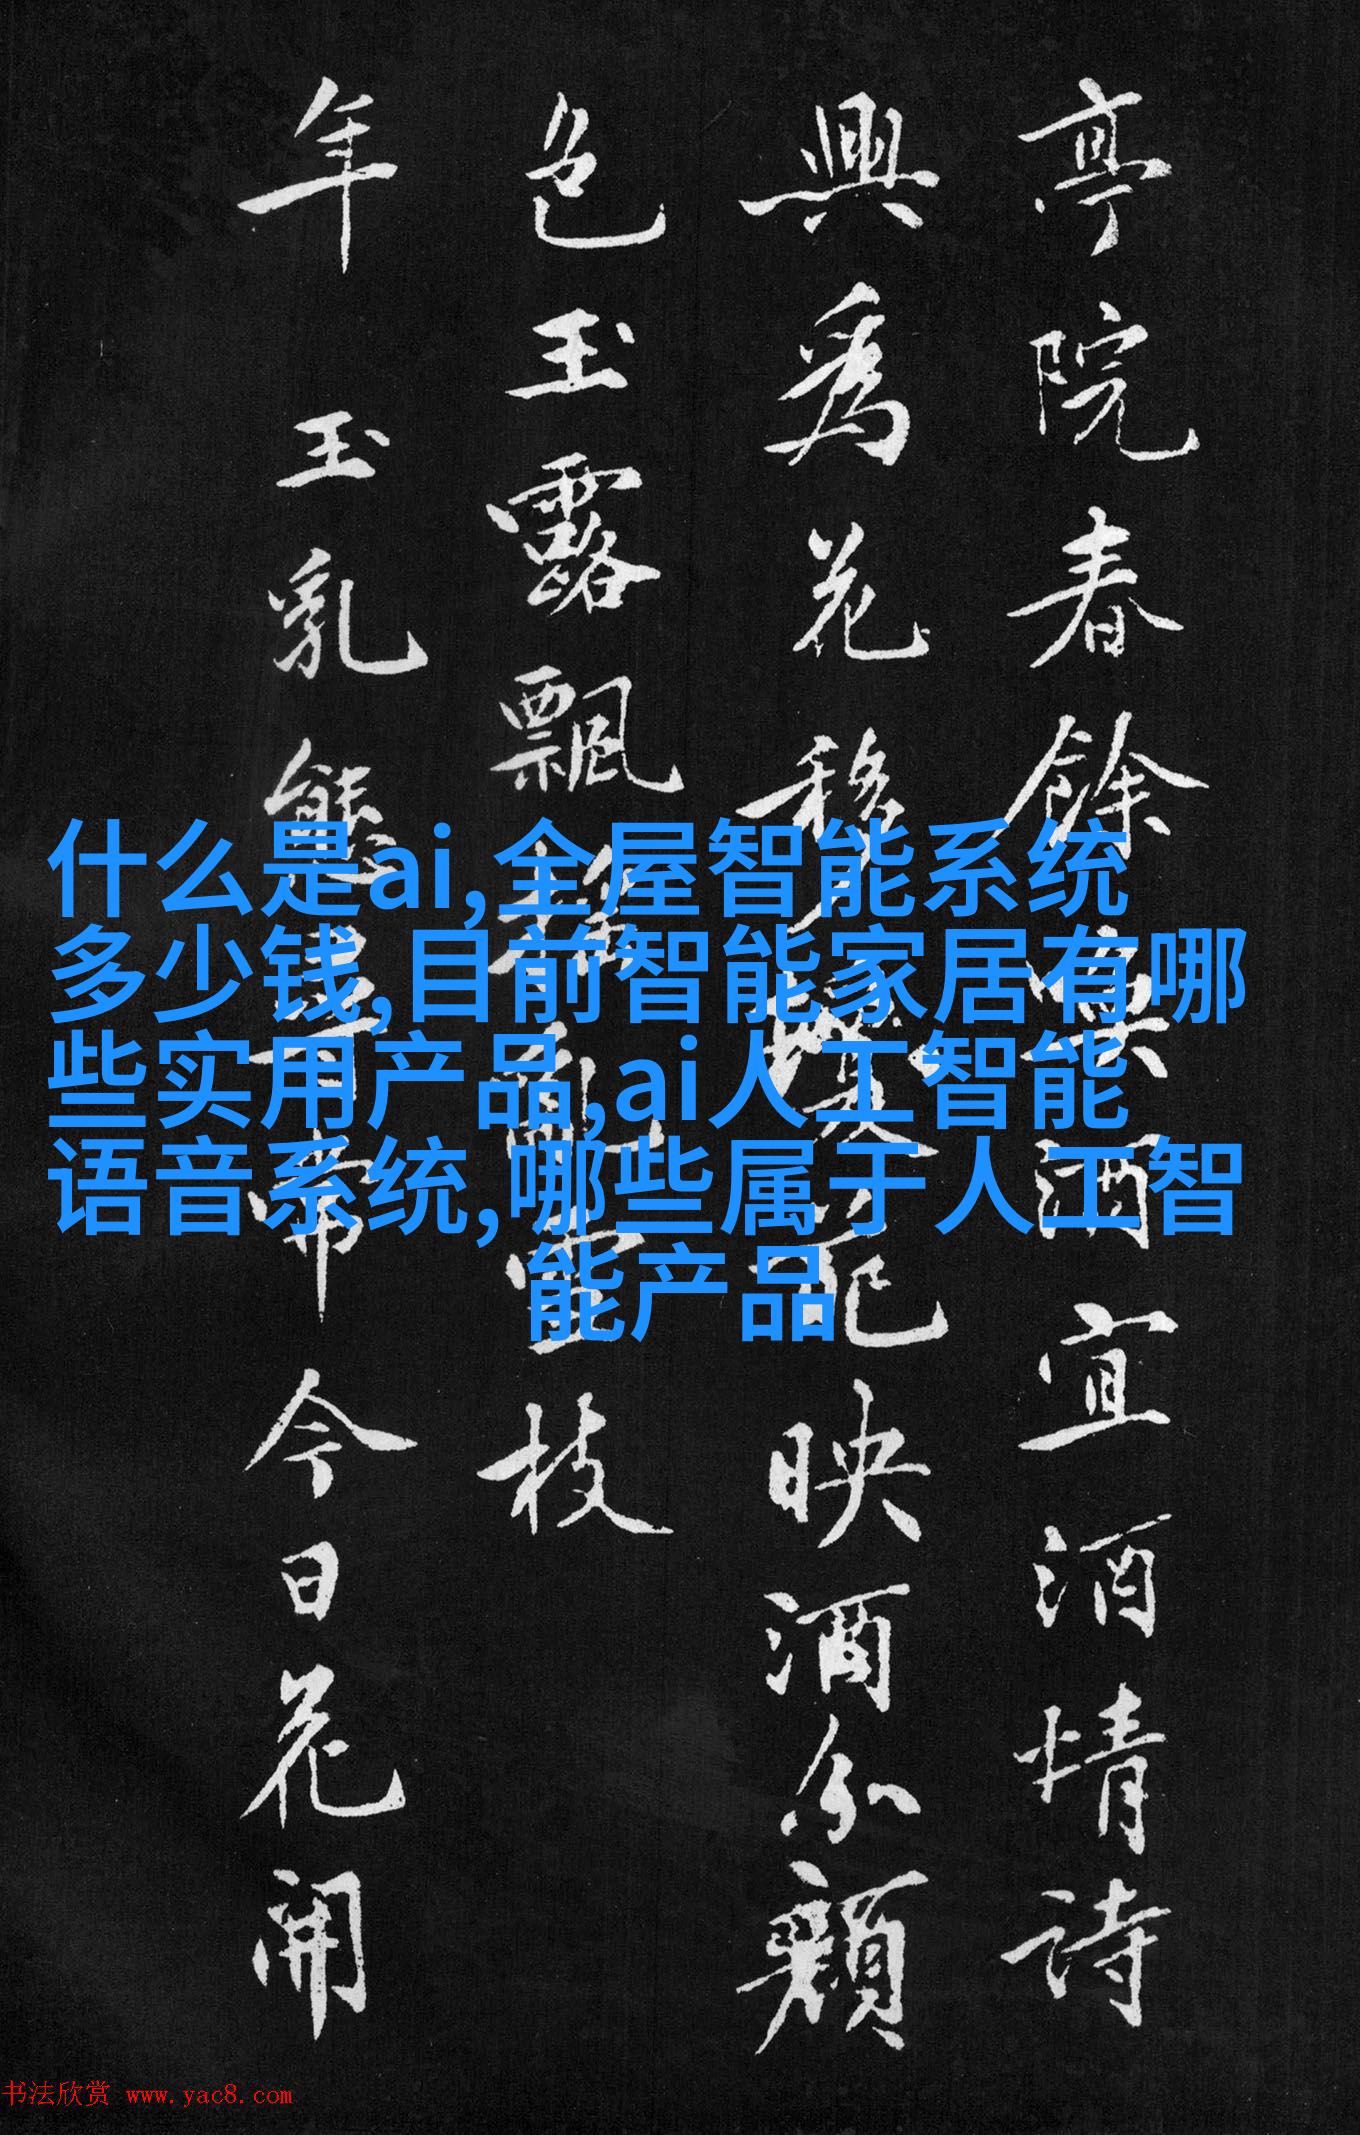 亭院春餘
酒宜酒情詩
興爲花移
映酒分顏
色玉露飄
枝
年玉乳態
帝今日花開
什么是ai,全屋智能系统
多少钱,目前智能家居有哪
些实用产品,ai人工智能
语音系统,哪些属于人工智
能产品
书法欣赏 www.yac8.com